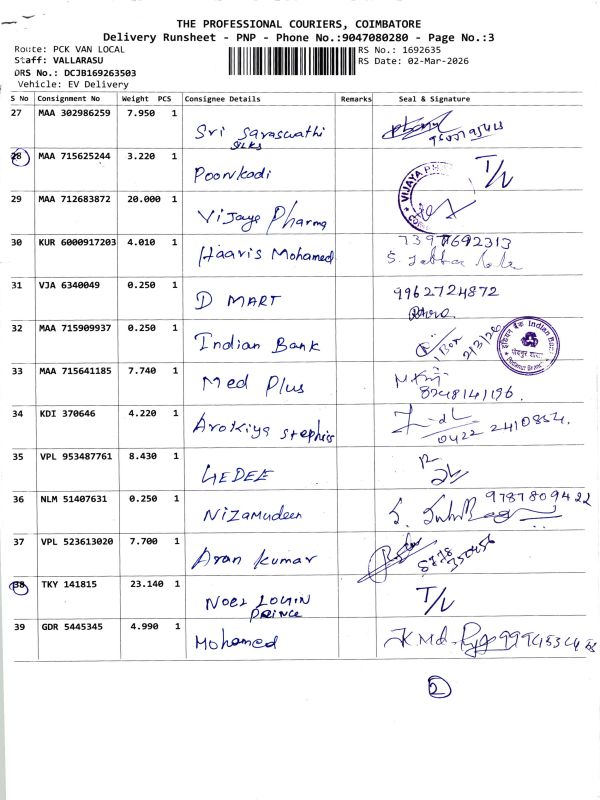 THE PROFESSIONAL COURIERS, COIMBATORE
Delivery Runsheet - PNP - Phone No.:9047080280 - Page No.:3
Route: PCK VAN LOCAL
RS No.: 1692635
Staff: VALLARASU
RS Date: 02-Mar-2026
DRS No.: DCJB169263503
Vehicle: EV Delivery
S No Consignment No Weight PCS Consignee Details Remarks Seal & Signature
27 MAA 302986259 7.950 1
Sri Saraswathi
SILKS
28 MAA 715625244 3.220 1
Poonkodi T/L
29 MAA 712683872 20.000 1
Vijaya Pharma
VIJAYA PH
30 KUR 6000917203 4.010 1 7397692313
Haaris Mohamed
31 VJA 6340049 0.250 1
D MART 9962724872
32 MAA 715909937 0.250 1
Indian Bank 2/3/26
Indian Bank
33 MAA 715641185 7.740 1
Med Plus 8248141196.
34 KDI 370646 4.220 1
Arokiya Stephies 0422 2410854.
35 VPL 953487761 8.430 1
GEDEE
36 NLM 51407631 0.250 1 9787809422
Nizamudeen
37 VPL 523613020 7.700 1
Arun Kumar
38 TKY 141815 23.140 1
Noel T/L
PRINCE
39 GDR 5445345 4.990 1
Mohamed
2